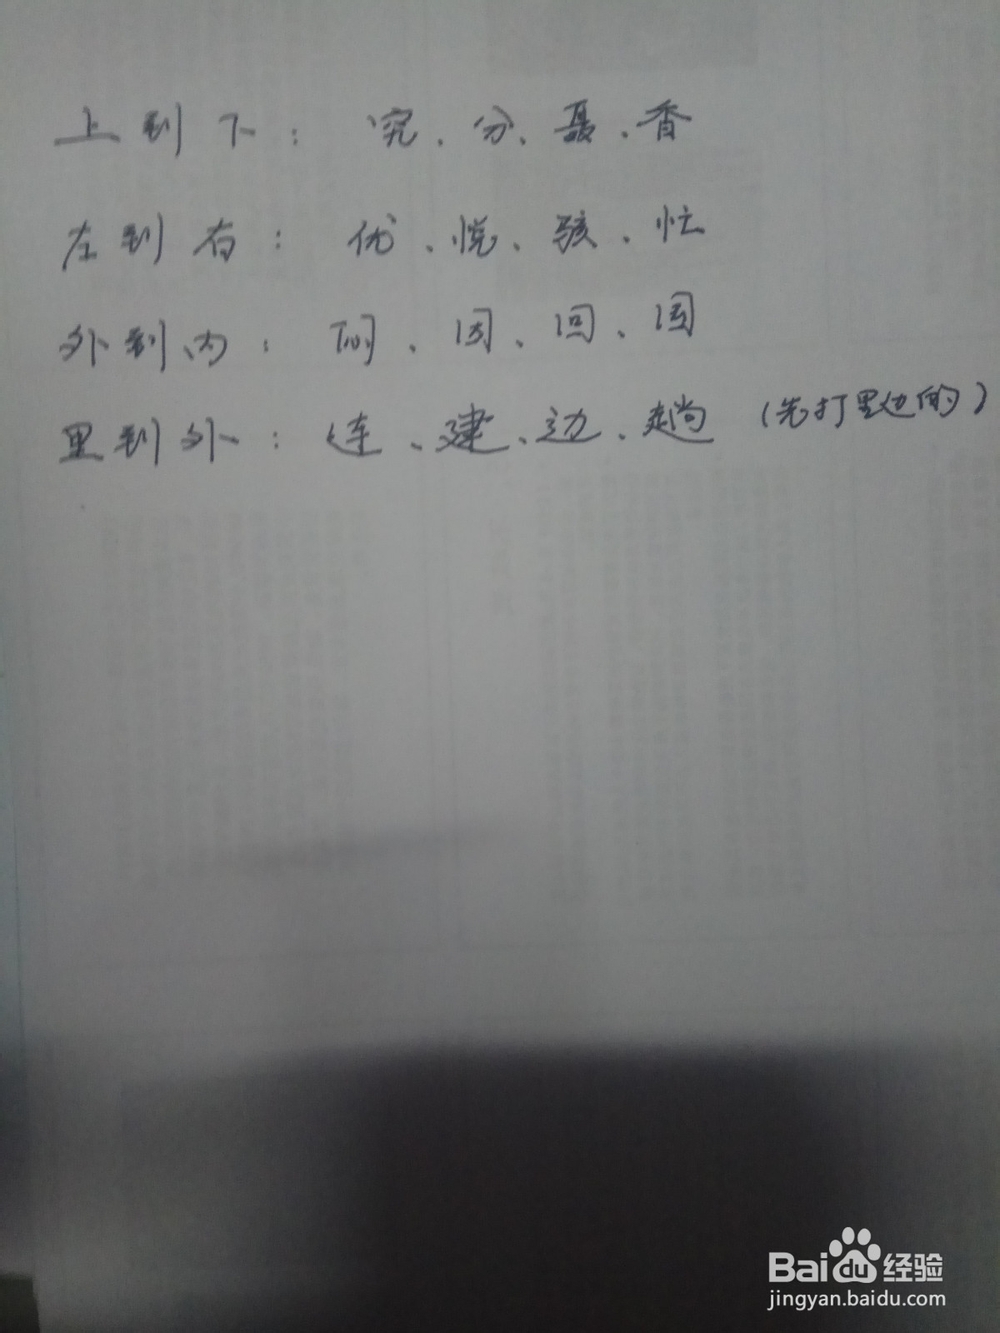 上到下：究、分、聂、香
左到右：优、悦、骇、忙
外到内：问、因、回、国
里到外：连、建、边、趟（先打里边的）
Baidu经验
jingyan.baidu.com